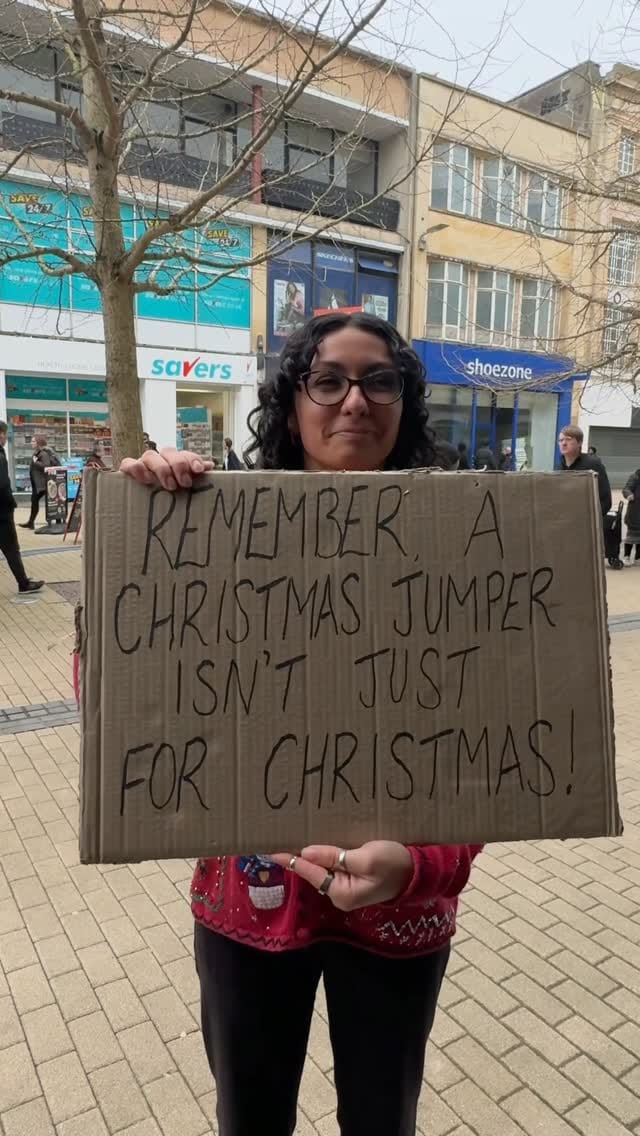 SAVE
24/7
SAVE
24/7
savers
shoezone
REMEMBER, A
CHRISTMAS JUMPER
ISN'T JUST
FOR CHRISTMAS!